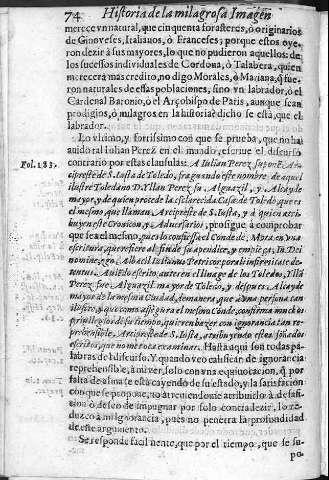 74 Historia de la milagrosa Imagen
merece vn natural, que cinquenta forasteros, ò originarios
de Ginoveses, Italianos, ò Franceses; porque estos oye-
ron dezir à sus mayores, lo que no pudieron aquellos: de
los sucessos individuales de Cordona, ò Talabera, quien
merecerà mas credito, no digo Morales, ò Mariana, q̃ fue-
ron naturales de essas poblaciones, sino vn labrador, ò el
Cardenal Baronio, ò el Arçobispo de Paris, aunque sean
prodigios, ò milagros en la historia: dicho se està, que el
labrador.
Lo vltimo, y fortissimo con que se prueba, que no ha
avido tal Iulian Perez en el mundo, es que el discurso
Fol. 183.
contrario por estas clausulas. A Iulian Perez supone Ar-
cipreste de S. Iusta de Toledo, fraguando este nombre de aquel
ilustre Toledano D. Yllan Perez su Alguazil, y Alcayde
mayor, y de quien procede la esclarecida Casa de Toledo que es
el mesmo, que llaman, Arcipreste de S. Iusta, y à quien atri-
buyen este Cronicon, y Adversarios, prosigue à comprobar
que sea el mesmo, pues lo confiessa el Conde de Mora en vna
escritura, que refiere al fin de su apendice, y empieça, In Dei
nomine,
Perez fue Alguazil mayor de Toledo, y despues Alcayde
mayor de la mesma Ciudad, de manera, que vna persona tan
ilustre, y que como assegura el mesmo Conde, confirma muchos
privilegios de su tiempo, quieren hazer con ignorancia tan re-
prehensible, Arcipreste de S. Iusta, atribuyendo estos
escritos, que no me toca examinar. Hasta aqui son todas pa-
labras de discurso. Y quando veo calificar de ignorancia
reprehensible, à mi ver, solo con vna equivocacion, q̃ por
falta de alma se està cayendo de su estado, y la satisfacion
con que se propone, no atreviendome atribuirlo à desafi-
cion ò deseo de impugnar por solo contradezir, lo re-
duzco à mi ignorancia, pues no penetra la profundidad
de este argumento.
Se responde facilmente, que por el tiempo, que se su-
po-